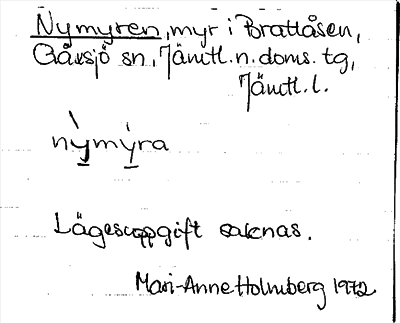 Nymyren, myr i Brattåsen,
Gåxsjö sn, Jämtl. n. doms. tg,
Jämtl. l.
nỳmýra
Lägesuppgift saknas.
Mari-Anne Holmberg 1972